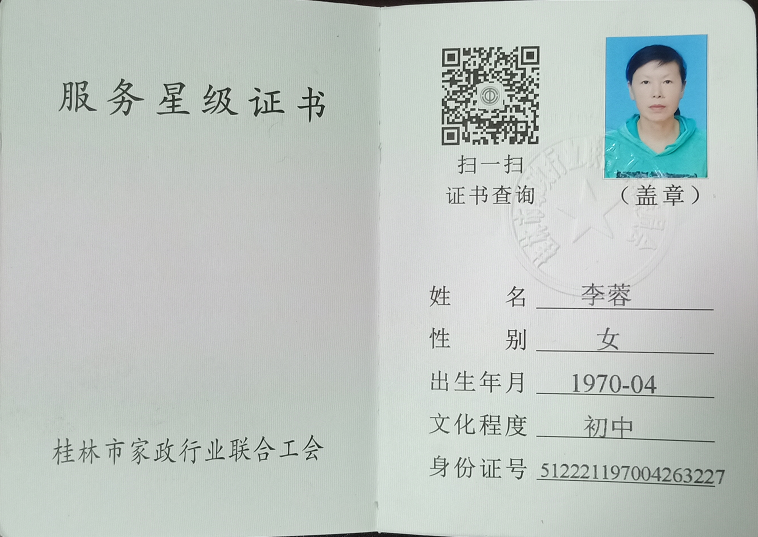 服务星级证书
桂林市家政行业联合工会
扫一扫
证书查询
（盖章）
姓 名 李蓉
性 别 女
出生年月 1970-04
文化程度 初中
身份证号 512221197004263227